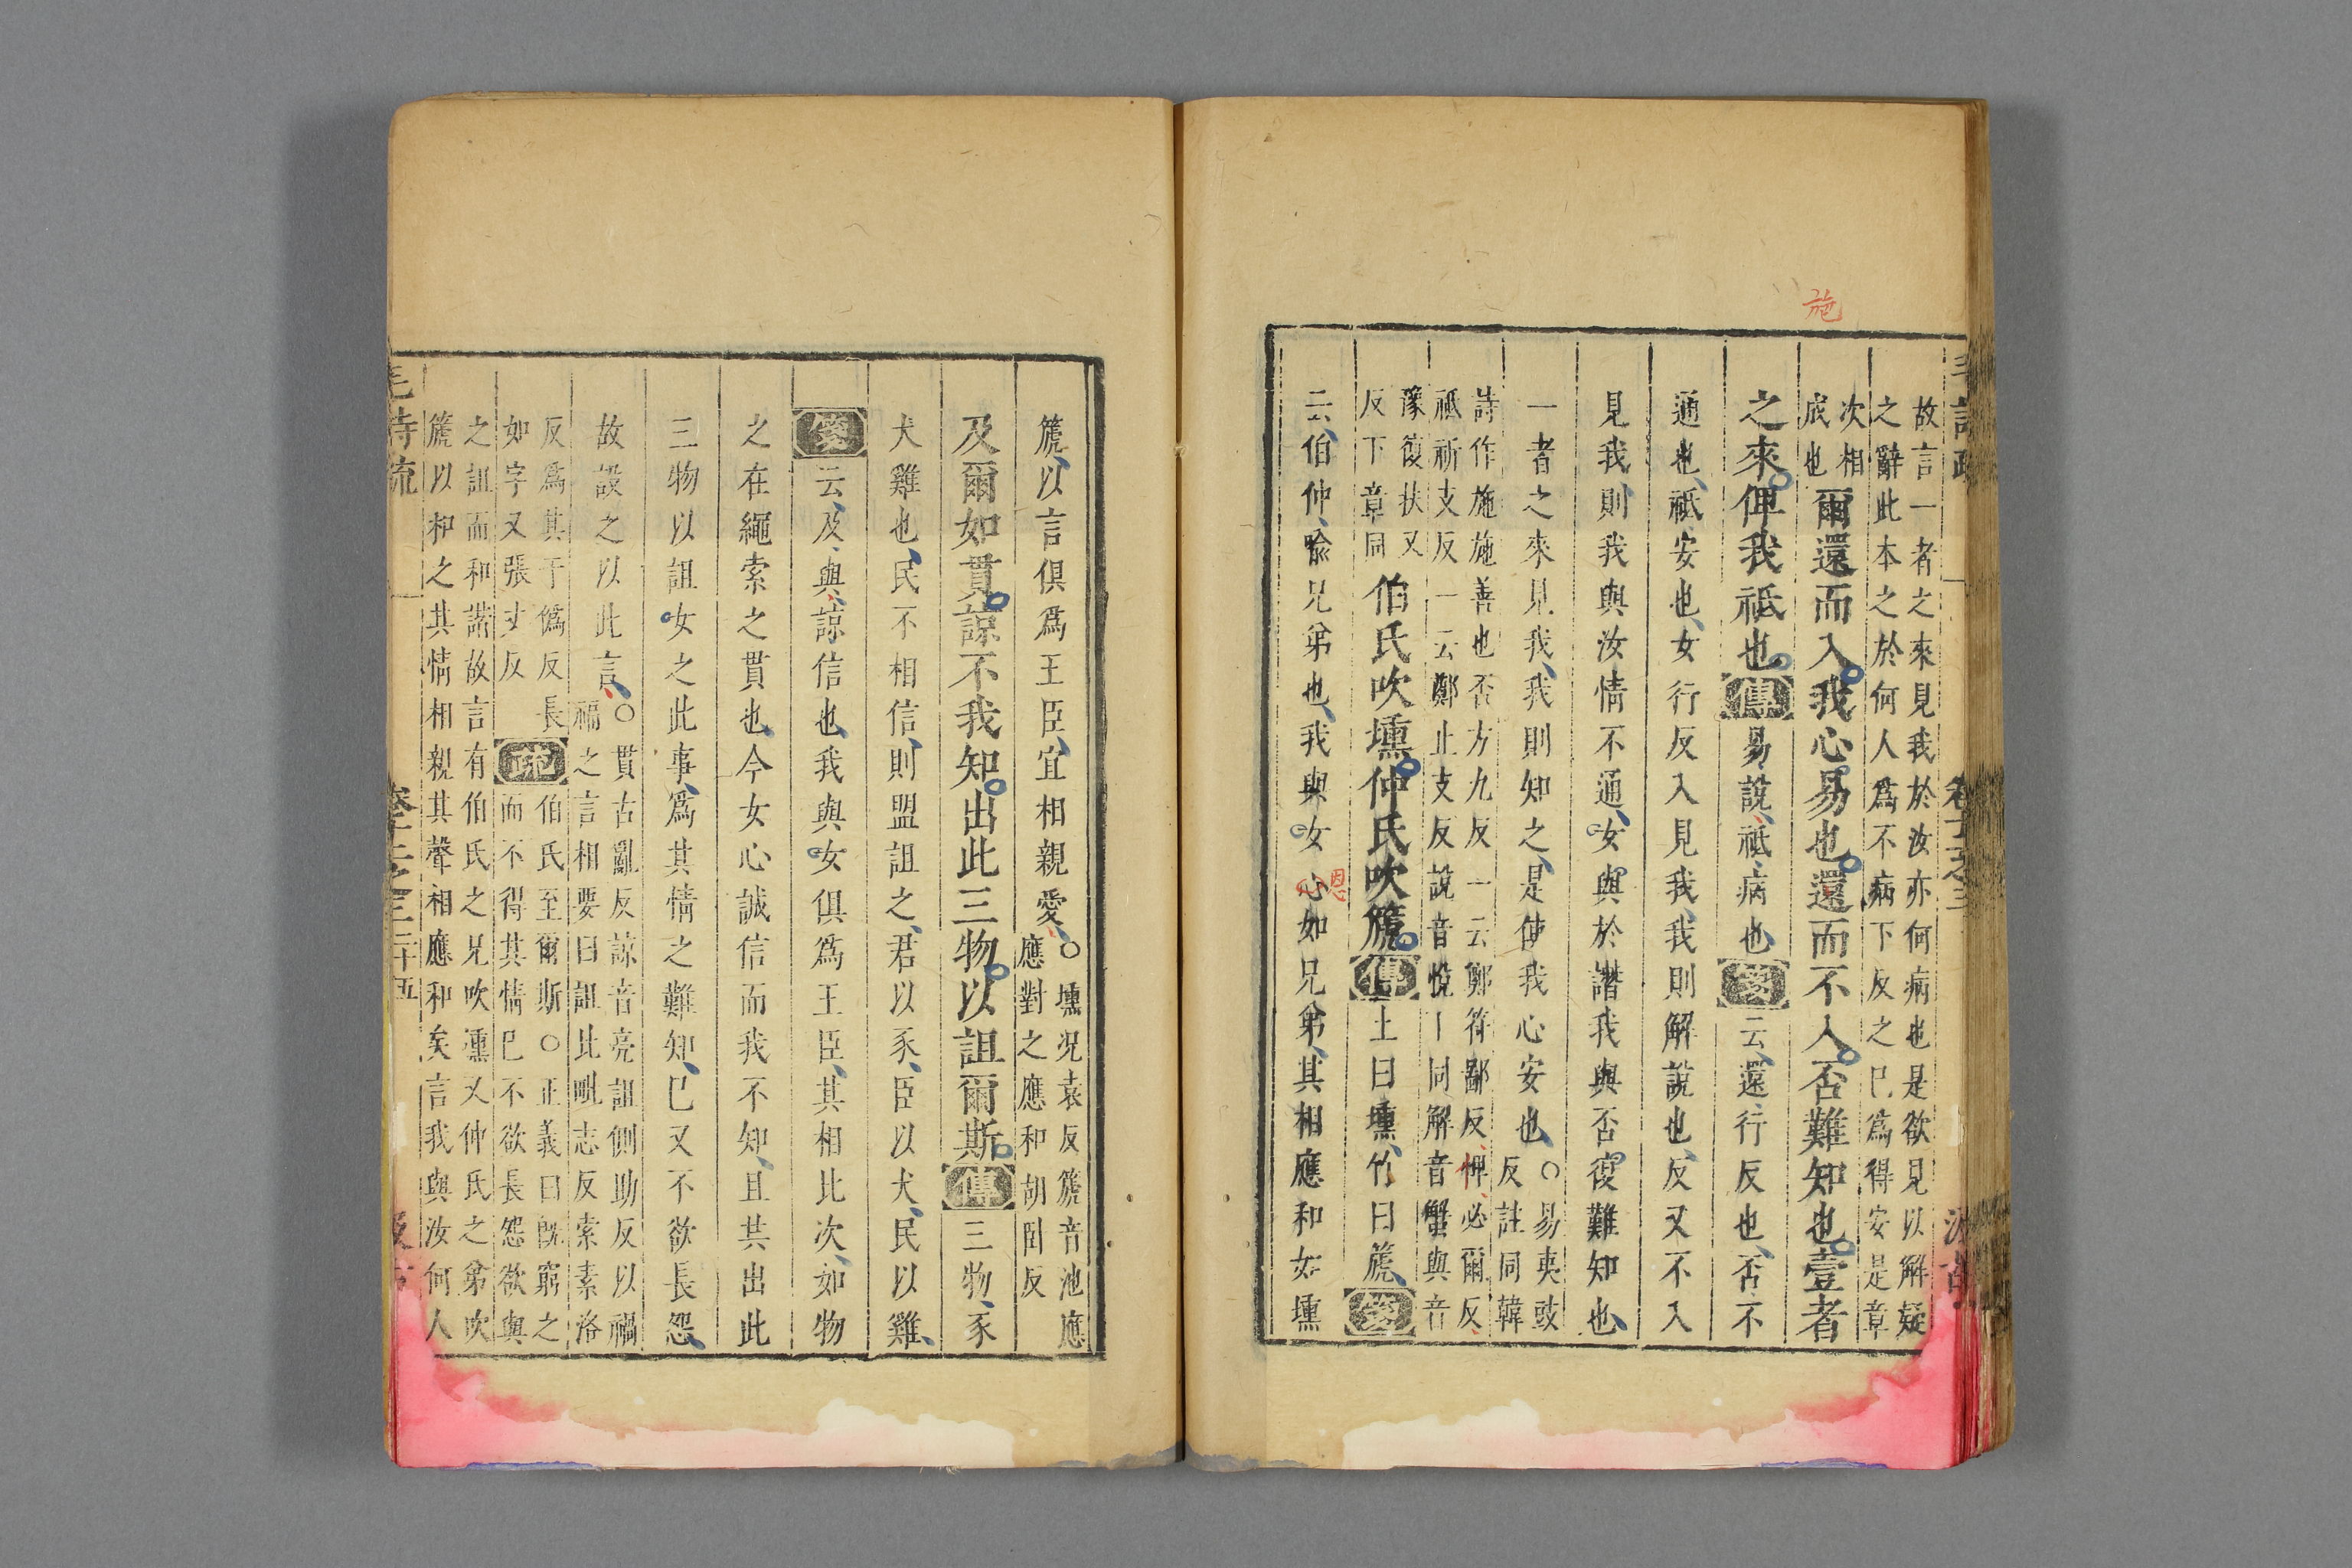 施
毛詩疏 卷十二之三 汲古
故言一者之來見我於汝亦何病也是欲見以解疑
之辭此本之於何人爲不病下反之已爲得安是章
次相
底也
爾還而入我心易也還而不入否難知也壹者
之來俾我祇也傳易說祇病也箋云還行反也否不
通也祇安也女行反入見我我則解說也反又不入
見我則我與汝情不通女與於譖我與否復難知也
一者之來見我我則知之是使我心安也
○易夷豉
反註同韓
詩作施施善也否方九反一云鄭符鄙反俾必爾反
祇祈支反一云鄭止支反說音悅下同解音蟹與音
豫復扶又
反下章同
伯氏吹壎仲氏吹篪傳土曰壎竹曰篪箋
云伯仲喻兄弟也我與女心如兄弟其相應和如壎
恩
篪以言俱爲王臣宜相親愛
○壎況袁反篪音池應
應對之應和胡臥反
及爾如貫諒不我知出此三物以詛爾斯傳三物豕
犬雞也民不相信則盟詛之君以豕臣以犬民以雞
箋云及與諒信也我與女俱爲王臣其相比次如物
之在繩索之貫也今女心誠信而我不知且共出此
三物以詛女之此事爲其情之難知已又不欲長怨
故設之以此言
○貫古亂反諒音亮詛側助反以禍
福之言相要曰詛比毗志反索素洛
反爲其于僞反長
如字又張丈反
疏
伯氏至爾斯○正義曰旣窮之
而不得其情已不欲長怨欲與
之詛而和諾故言有伯氏之兄吹壎又仲氏之弟吹
篪以和之其情相親其聲相應和矣言我與汝何人
毛詩疏 卷十二之三 二十五 汲古